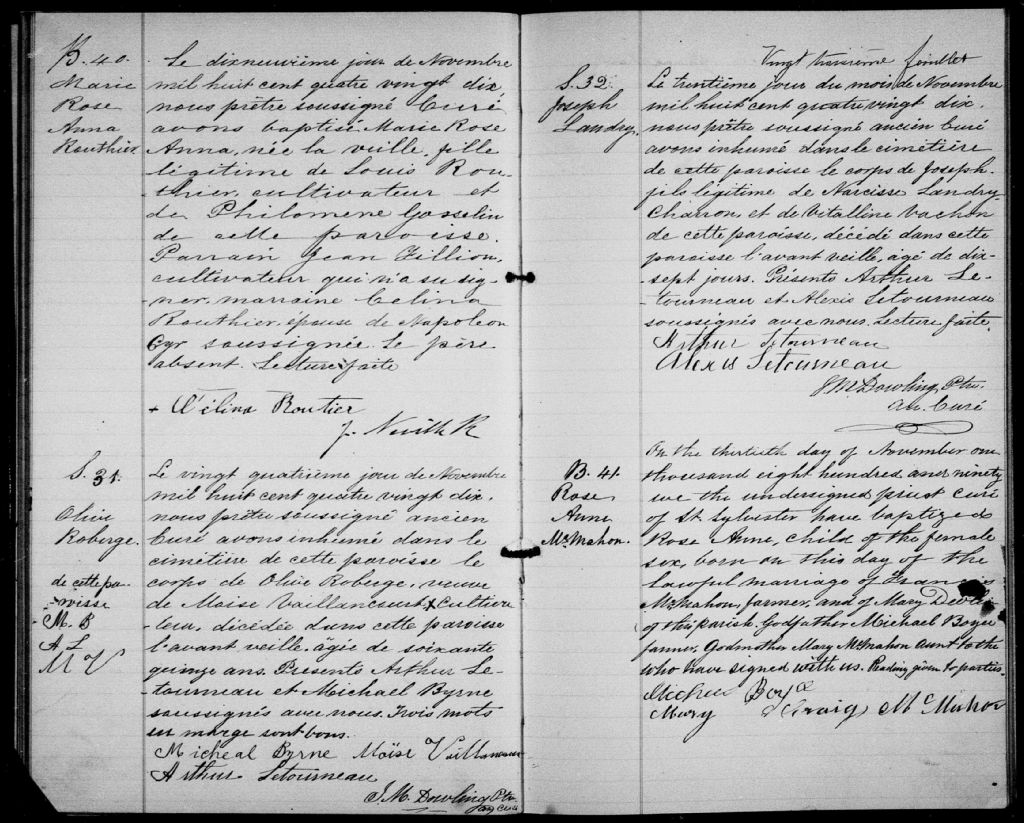 B. 40.
Marie
Rose
Anna
Routhier
Le dixneuvième jour de Novembre
mil huit cent quatre vingt dix,
nous prêtre soussigné Curé
avons baptisé Marie Rose
Anna, née la veille, fille
légitime de Louis Rou-
thier, cultivateur et
de Philomene Gosselin
de cette paroisse.
Parrain Jean Fillion,
cultivateur qui n'a su sig-
ner, marraine Celina
Routhier, épouse de Napoleon
Cyr soussignée. Le père
absent. Lecture faite
+ Célina Routier
J. Nevill
S. 31.
Olive
Roberge.
de cette pa-
roisse
M. B
A L
M V
Le vingt quatrième jour de Novembre
mil huit cent quatre vingt dix.
nous prêtre soussigné ancien
Curé avons inhumé dans le
cimetière de cette paroisse le
corps de Olive Roberge, veuve
de Moise Vaillancourt x cultiva-
teur, décédée dans cette paroisse
l'avant veille, âgée de soixante
quinze ans. Présents Arthur Le-
tourneau et Michael Byrne
soussignés avec nous. Trois mots
en marge sont bons.
Micheal Byrne Moïse Vaillancour
Arthur Letourneau
J.M. Dowling Ptr.
an. Curé
Vingt troisième feuillet
S. 32.
Joseph
Landry.
Le trentième jour du mois de Novembre
mil huit cent quatre vingt dix.
nous prêtre soussigné ancien Curé
avons inhumé dans le cimetière
de cette paroisse le corps de Joseph
fils légitime de Narcisse Landry
Charron, et de Vitalline Vachon
de cette paroisse, décédé dans cette
paroisse l'avant veille, agé de dix-
sept jours. Présents Arthur Le-
tourneau et Alexis Letourneau
soussignés avec nous. Lecture faite.
Arthur Letourneau
Alexis Letourneau
J M. Dowling, Ptr.
an. Curé
B. 41.
Rose
Anne
McMahon.
On the thirtieth day of November one
thousand eight hundred and ninety
we the undersigned priest curé
of St Sylvester have baptized
Rose Anne, child of the female
sex, born on this day of the
lawful marriage of Francis
McMahon, farmer, and of Mary Devlin
of this parish. Godfather Michael Boyce
farmer, Godmother Mary McMahon Aunt to the
who have signed with us. Reading given to parties
Michael Boyce
Mary Craig McMahon